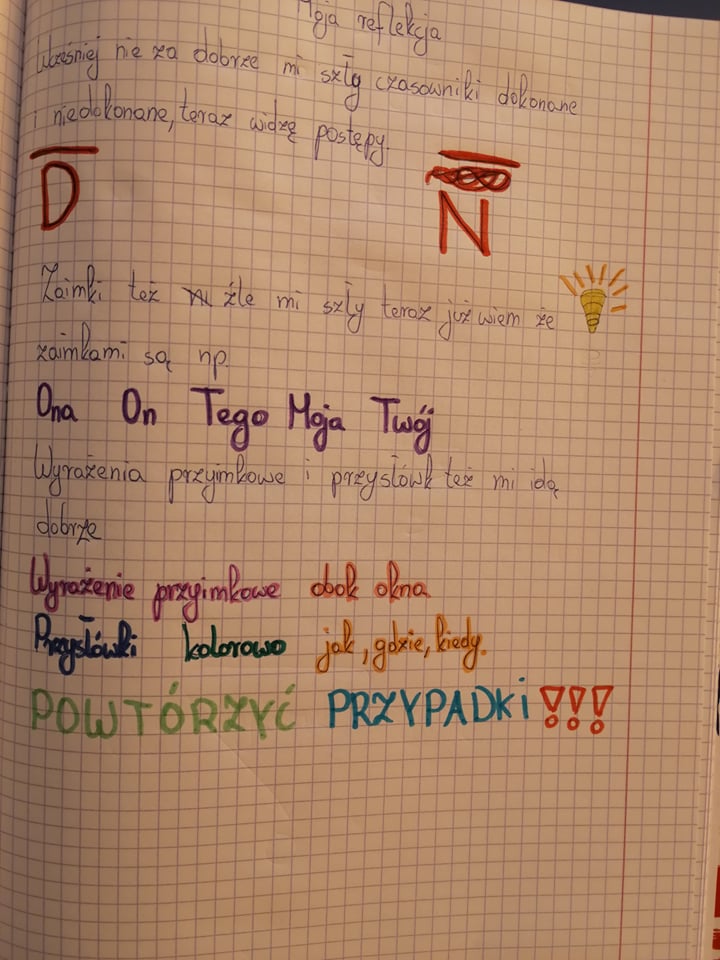 Moja refleksja
Wcześniej nie za dobrze mi szły czasowniki dokonane
i niedokonane, teraz widzę postępy.
D N
Zaimki też źle mi szły teraz już wiem że
zaimkami są np.
Ona On Tego Moja Twój
Wyrażenia przyimkowe i przysłówk też mi idą
dobrze
Wyrażenie przyimkowe obok okna
Przysłówki kolorowo jak, gdzie, kiedy.
POWTÓRZYĆ PRZYPADKI!!!